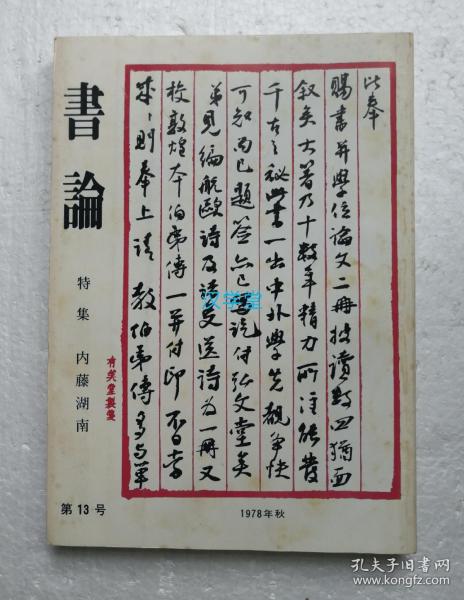 書論
特集 内藤湖南
第13号
比奉
賜書并學位論文二冊披讀數四猶面
叙矣大著乃十數年精力所注能發
千古之祕此書一出中外學先覩爭快
可知尚已題簽亦已寫訖付弘文堂矣
弟見編航歐詩及諸友送詩為一冊又
校敦煌本伯弟傳一并付印不日
則奉上請教伯弟傳多与單
汉学堂
1978年秋
孔夫子旧书网
www.kongfz.com